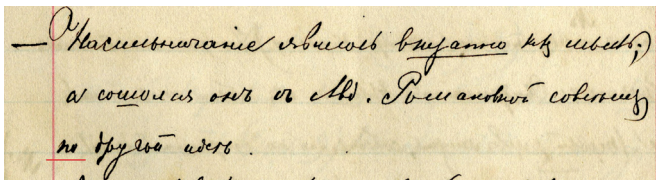 — Насильничаніе явилось внезапно как мысль;
а сошолся онъ съ Авд. Романовной совсѣмъ
по другой идеѣ.